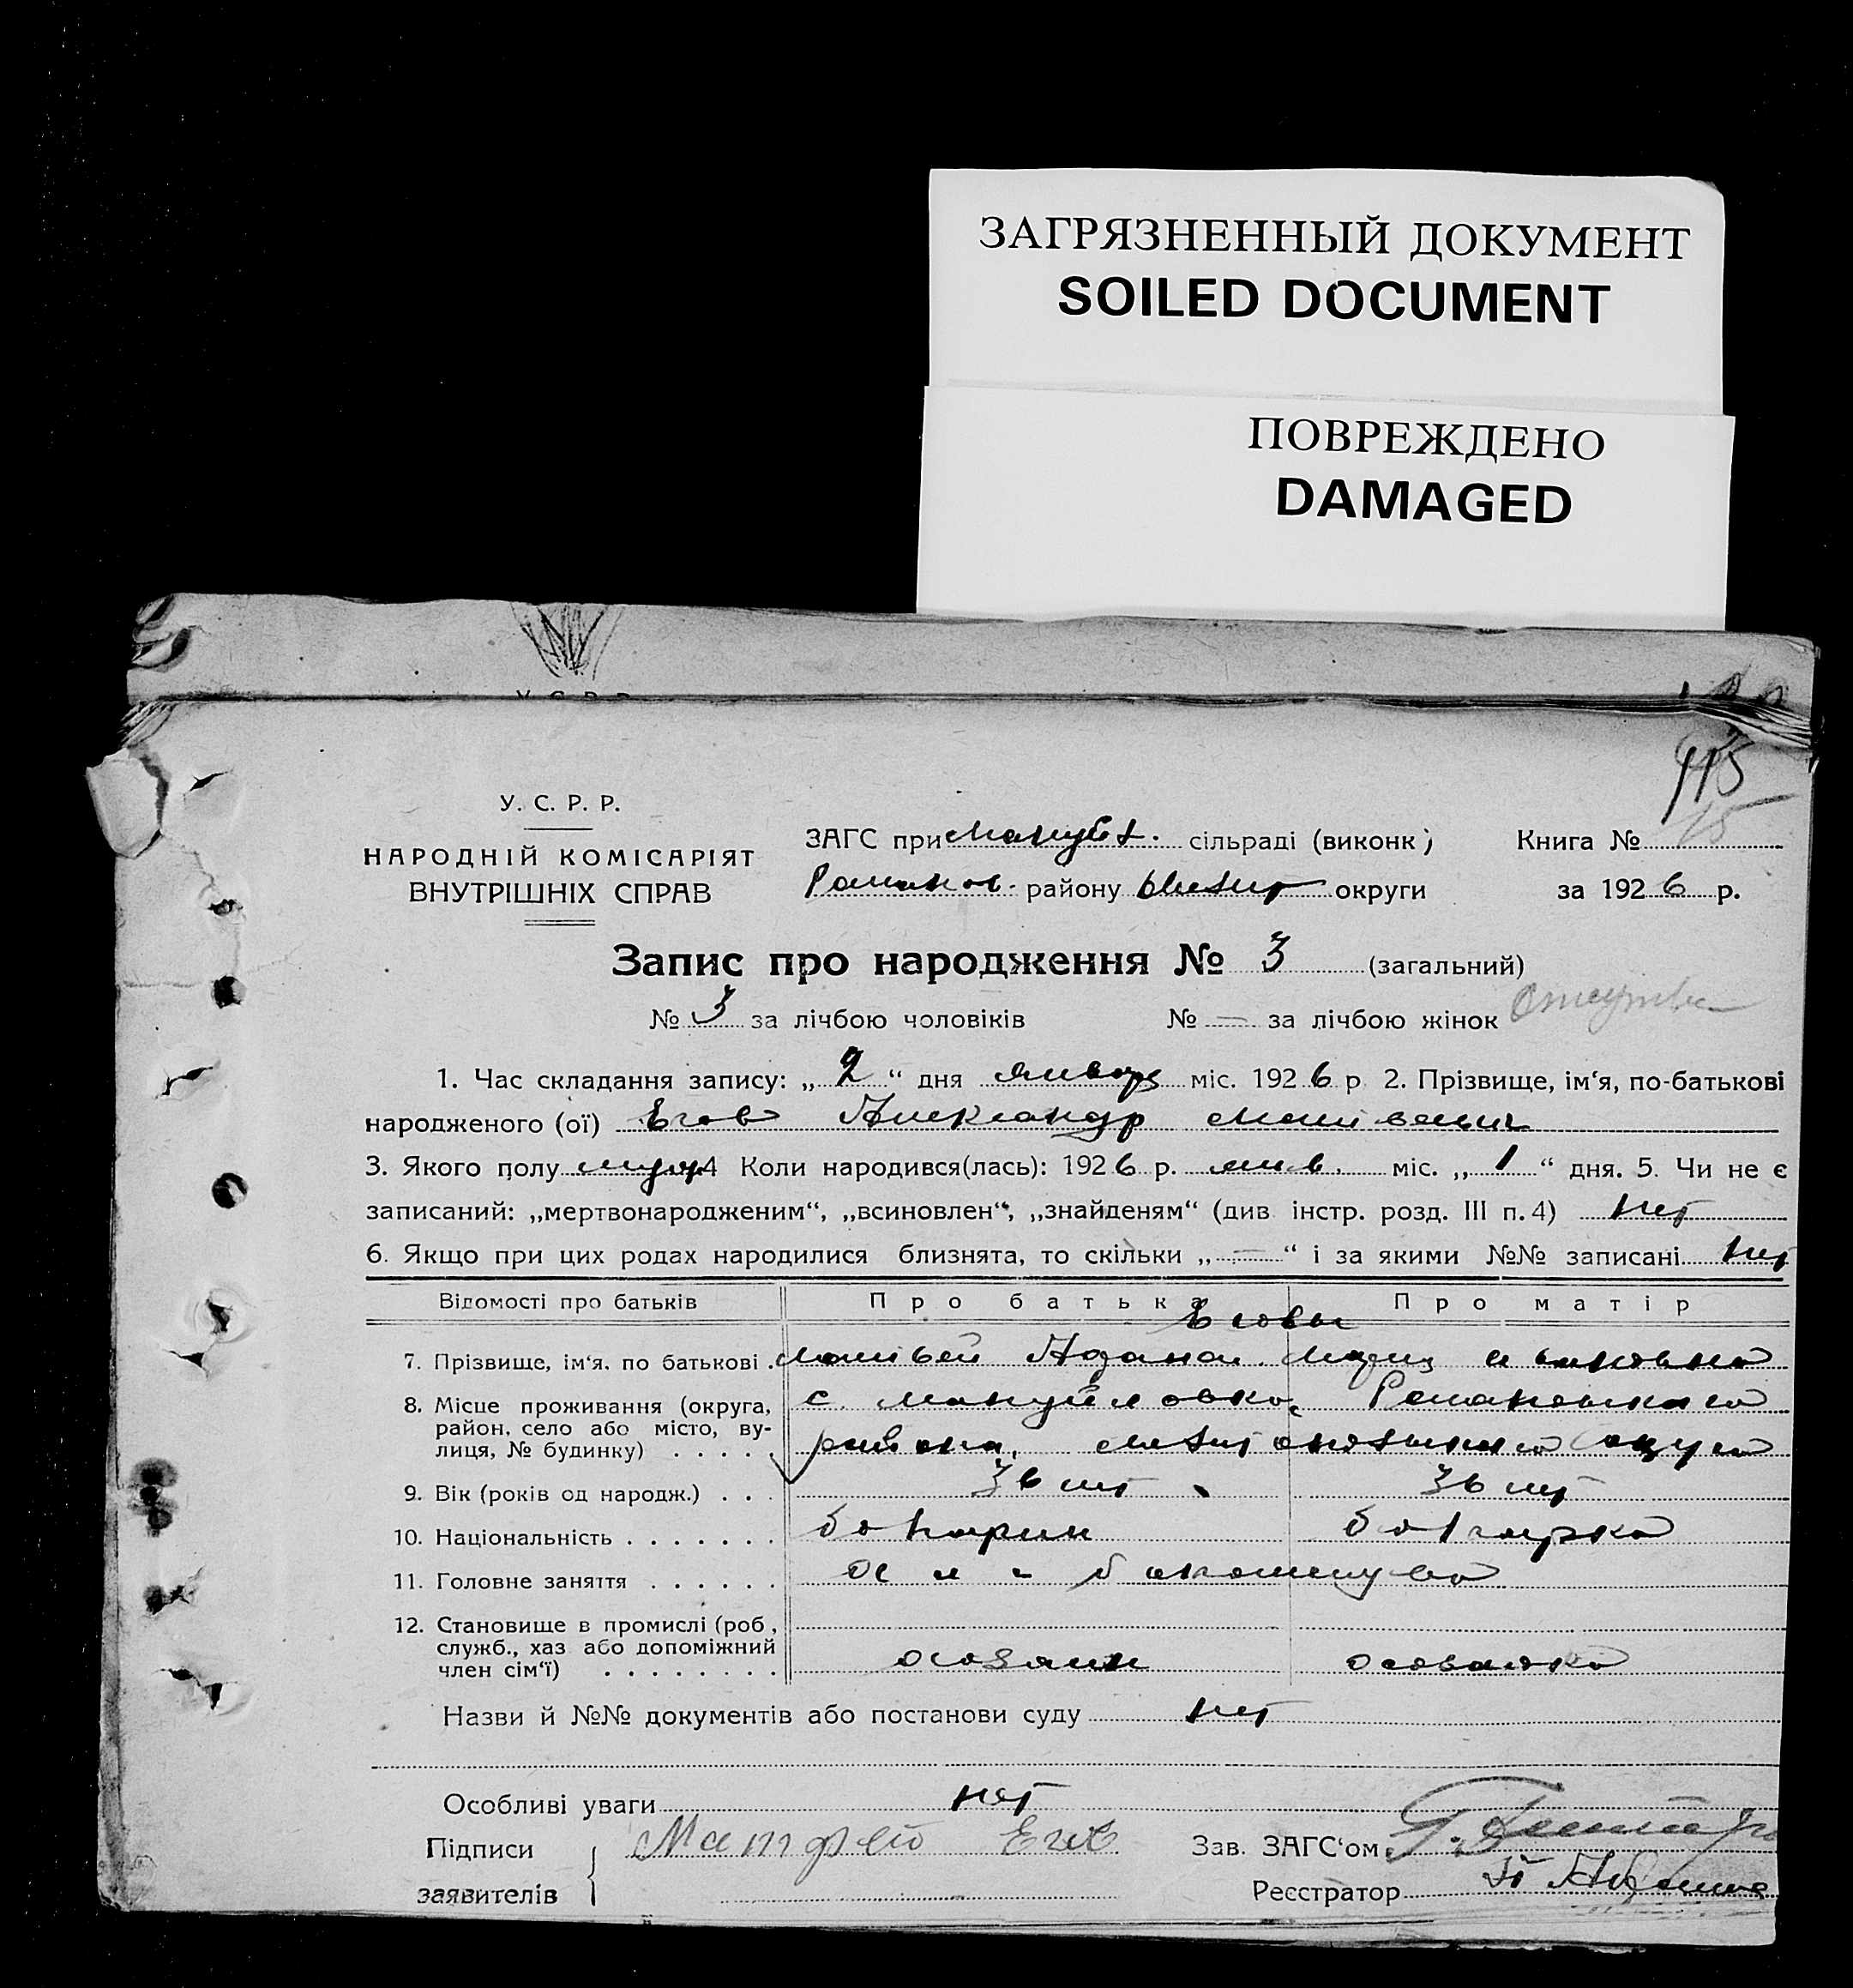 ЗАГРЯЗНЕННЫЙ ДОКУМЕНТ
SOILED DOCUMENT
ПОВРЕЖДЕНО
DAMAGED
У. С. Р. Р.
НАРОДНІЙ КОМІСАРІЯТ
ВНУТРІШНІХ СПРАВ
ЗАГС при сільраді (виконк) Книга №
Роман ов. району Мелит округи за 1926 р.
Запис про народження № 3 (загальний)
№ 3 за лічбою чоловіків № — за лічбою жінок
1. Час складання запису: „2“ дня январ міс. 1926 р 2. Прізвище, ім‘я, по-батькові
народженого (ої) Егов Александр Матвеевич
3. Якого полу муж 4 Коли народився(лась): 1926 р. янв. міс. „1“ дня. 5. Чи не є
записаний: „мертвонародженим“, „всиновлен“, „знайденям“ (див інстр. розд. III п. 4) нет
6. Якщо при цих родах народилися близнята, то скільки „—“ і за якими №№ записані нет
Відомості про батьків Про батька Про матір
Еговы
7. Прізвище, ім‘я, по батькові Матвей Мария Ивановна
8. Місце проживання (округа, район, село або місто, вулиця, № будинку) с. Мануйловка, Романовского
района, округа
9. Вік (років од народж.) 36 лет 36 лет
10. Національність болгарин болгарка
11. Головне заняття
12. Становище в промислі (роб, служб., хаз або допоміжний член сім‘ї)
Назви й №№ документів або постанови суду нет
Особливі уваги нет
Підписи Матфей Егов Зав. ЗАГС‘ом
заявителів Реєстратор